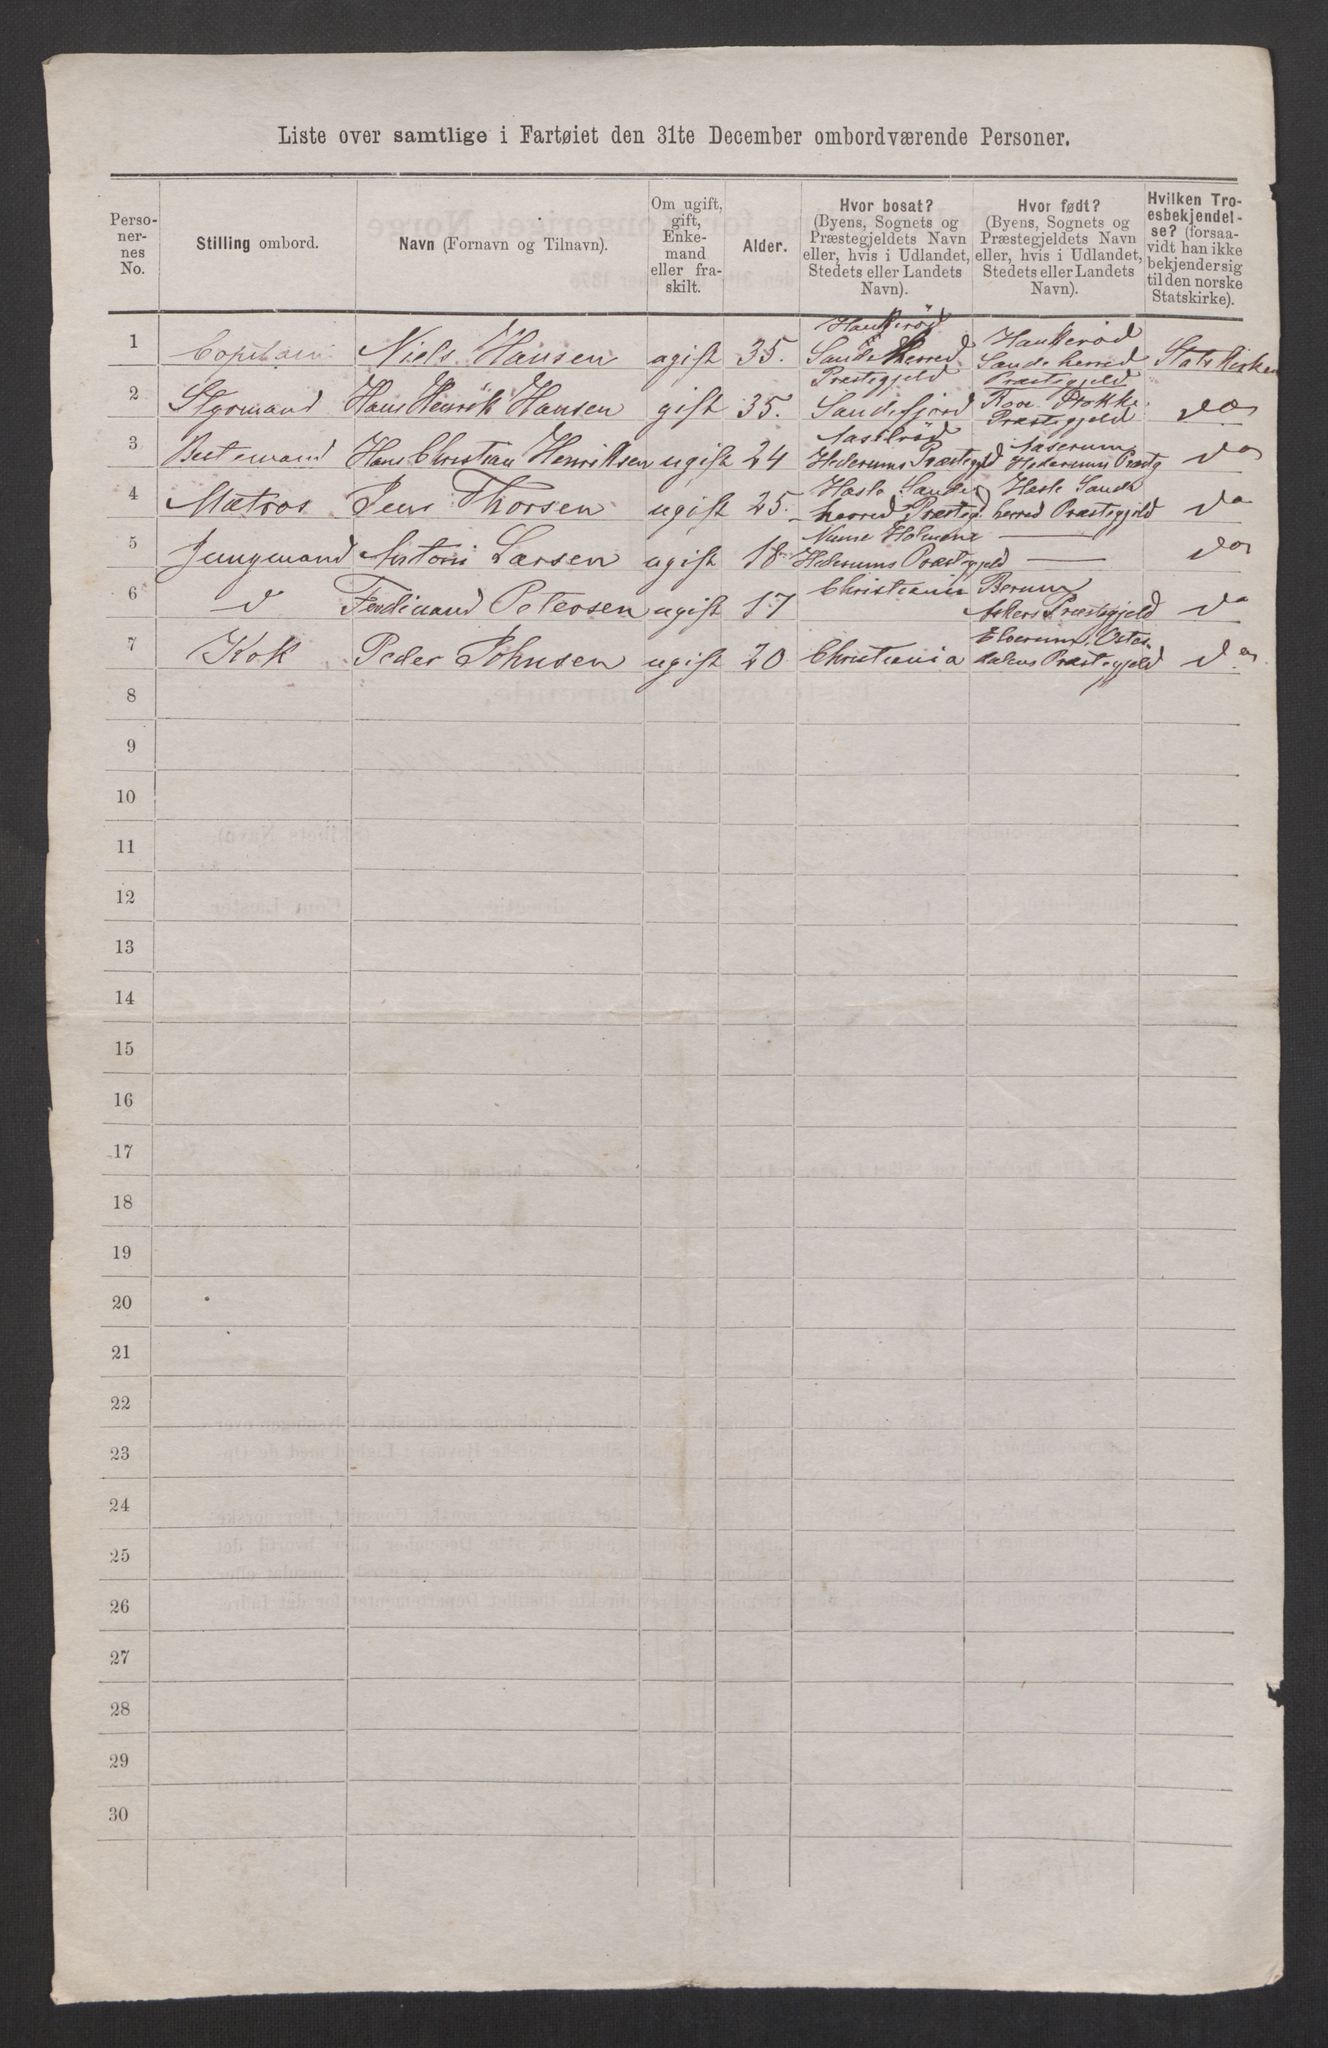 Liste over samtlige i Fartøiet den 31te December ombordværende Personer.
Perso-
ner-
nes
No.
Stilling ombord.
Navn (Fornavn og Tilnavn).
Om ugift,
gift,
Enke-
mand
eller fra-
skilt.
Alder.
Hvor bosat?
(Byens, Sognets og
Præstegjeldets Navn
eller, hvis i Udlandet,
Stedets eller Landets
Navn).
Hvor født?
(Byens, Sognets og
Præstegjeldets Navn
eller, hvis i Udlandet,
Stedets eller Landets
Navn).
Hvilken Tro-
esbekjendel-
se? (forsaa-
vidt han ikke
bekjender sig
til den norske
Statskirke).
1 Capitain Niels Hansen ugift 35. Haukerød Sandeherred Præstegjeld Haukerød Sandeherred Præstegjeld Statskirken
2 Styrmand Hans Henrik Hansen gift 35. Sandefjord Stokke Præstegjeld do
3 Bestemand Hans Christian Henriksen ugift 24 Hederums Præstegjeld Aaserum Hederums Præstg do
4 Matros Jens Thorsen ugift 25. Hasle Sandeherred Præsteg. Hasle Sandeherred Præstegjeld do
5 Jungmand Larsen ugift 18 Holmene Hederums Præstegjeld — — do
6 d Ferdinand Petersen ugift 17 Christiania Berum Askers Præstegjeld do
7 Kok Peder Johnsen ugift 20 Christiania Elverum Præstegjeld do
8
9
10
11
12
13
14
15
16
17
18
19
20
21
22
23
24
25
26
27
28
29
30